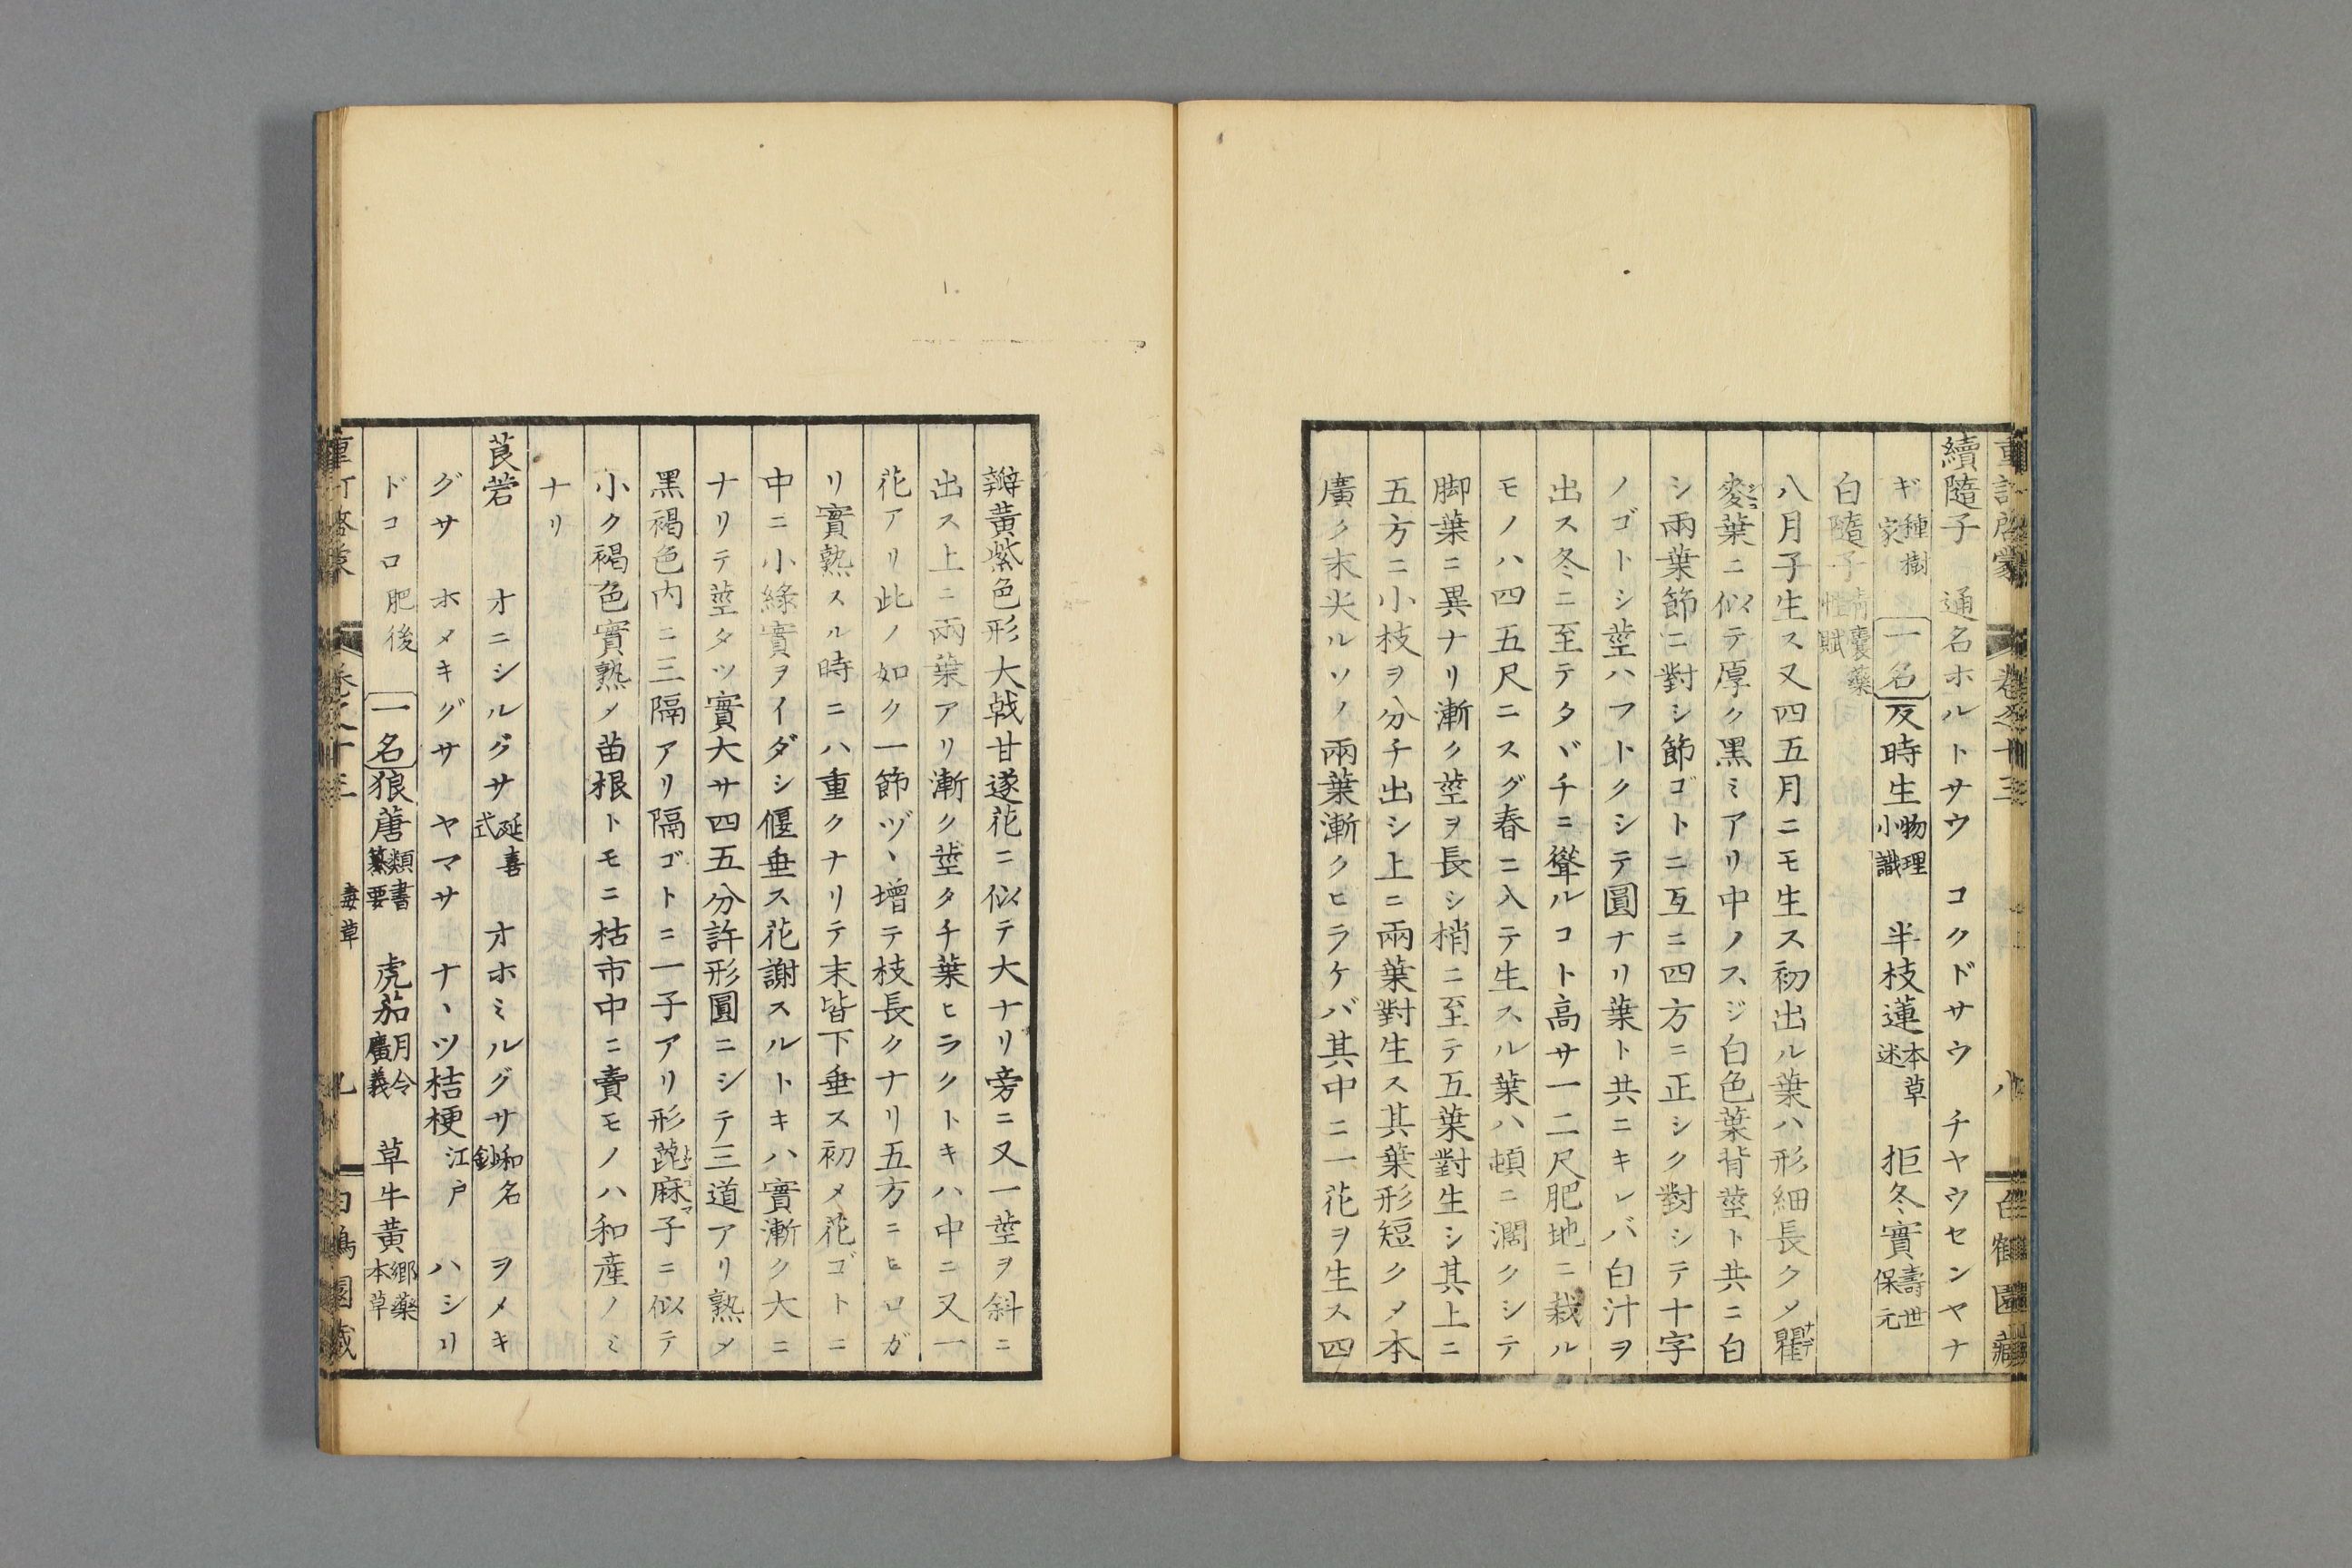 續隨子　通名ホルトサウ　コクドサウ　チヤウセンヤナ
ギ 種樹家 一名 反時生 物理小識 半枝蓮 本草述 拒冬實 壽世保元
白隨子 青囊藥性賦
八月子生ス又四五月ニモ生ス初出ル葉ハ形細長クメ瞿
麥葉ニ似テ厚ク黑ミアリ中ノスジ白色葉背莖ト共ニ白
シ兩葉節ニ對シ節ゴトニ互ニ四方ニ正シク對シテ十字
ノゴトシ莖ハフトクシテ圓ナリ葉ト共ニキレバ白汁ヲ
出ス冬ニ至テタヾチニ聳ルコト高サ一二尺肥地ニ栽ル
モノハ四五尺ニスグ春ニ入テ生スル葉ハ頓ニ濶クシテ
脚葉ニ異ナリ漸ク莖ヲ長シ梢ニ至テ五葉對生シ其上ニ
五方ニ小枝ヲ分チ出シ上ニ兩葉對生ス其葉形短クメ本
廣ク末尖ルソノ兩葉漸クヒラケバ其中ニ一花ヲ生ス四
瓣黃紫色形大戟甘遂花ニ似テ大ナリ旁ニ又一莖ヲ斜ニ
出ス上ニ兩葉アリ漸ク莖タチ葉ヒラクトキハ中ニ又一
花アリ此ノ如ク一節ヅヽ增テ枝長クナリ五方ニヒロガ
リ實熟スル時ニハ重クナリテ末皆下垂ス初メ花ゴトニ
中ニ小綠實ヲイダシ偃垂ス花謝スルトキハ實漸ク大ニ
ナリテ莖タツ實大サ四五分許形圓ニシテ三道アリ熟メ
黑褐色內ニ三隔アリ隔ゴトニ一子アリ形蓖麻子ニ似テ
小ク褐色實熟メ苗根トモニ枯市中ニ賣モノハ和產ノミ
ナリ
莨菪　オニシルグサ 延喜式 オホミルグサ 和名鈔 ヲメキ
グサ　ホメキグサ　ヤマサ　ナヽツ桔梗 江戶 ハシリ
ドコロ 肥後 一名 狼蓎 類書纂要 虎茄 月令廣義 草牛黃 鄉藥本草
重訂啓蒙　卷之十三　八　白鶴園藏
毒草　九